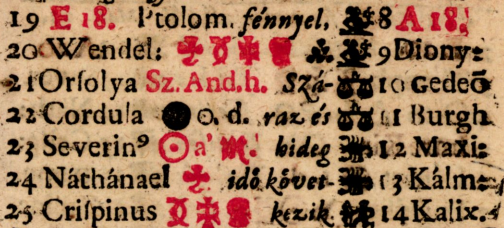 19 E 18. Ptolom. fénnyel. 8 A 18.
20 Wendel: 9 Diony:
21 Orſolya Sz. And. h. Szá- 10 Gedeō
22 Cordula ● o. d. raz és 11 Burgh
23 Severinꝰ ☉ a' ♏.' hideg 12 Maxi:
24 Náthánael idő követ- 13 Kálm:
25 Criſpinus kezik. 14 Kalix.